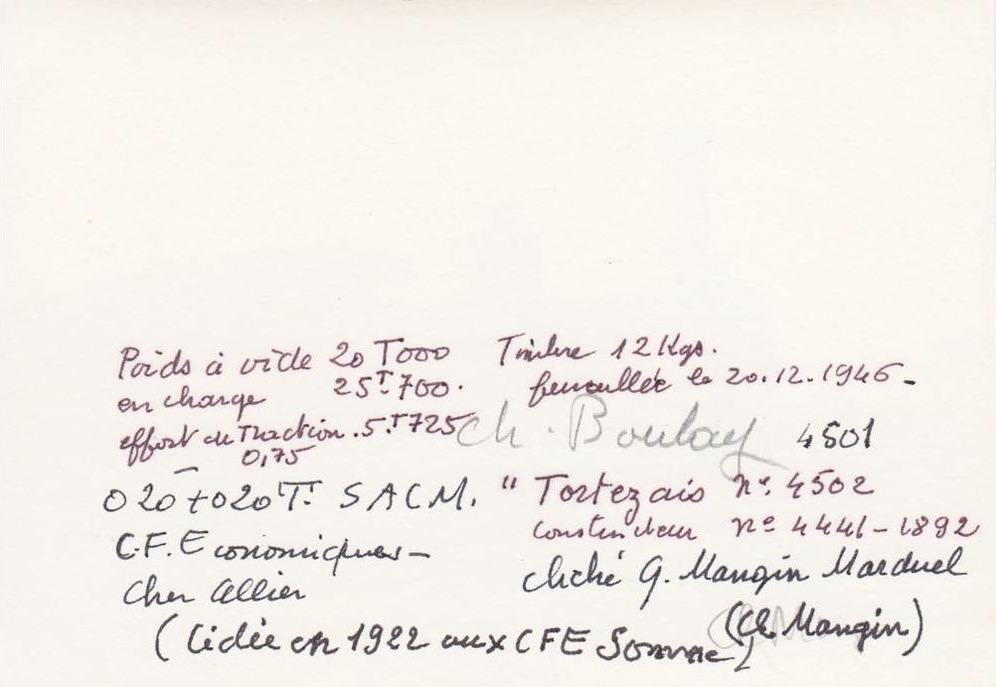 Poids à vide 20 T000
en charge 25T.700.
effort de Traction . 5.T725
0,75
Timbre 12 Kgs.
le 20.12.1946 -
Ch. Boulay 4501
020+020 T. SACM.
" Tortezais n°. 4502
constructeur n° 4441-1892
C.F. Economiques -
Cher Allier
cliché G. Mangin Marduel
(Cl. Mangin)
(Cédée en 1922 aux CFE Somme)